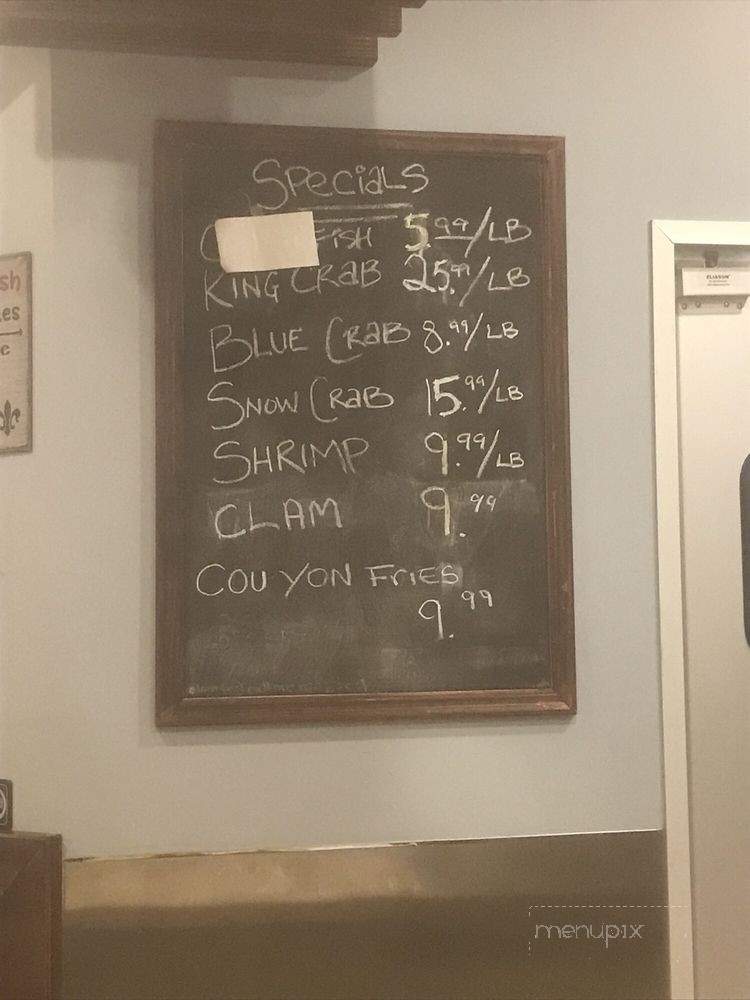 SPecials
FISH 5.99/LB
KING CRAB 25.99/LB
BLUE CRAB 8.99/LB
SNOW CRAB 15.99/LB
SHRIMP 9.99/LB
CLAM 9.99
COUYON FrIES
9.99
menupix